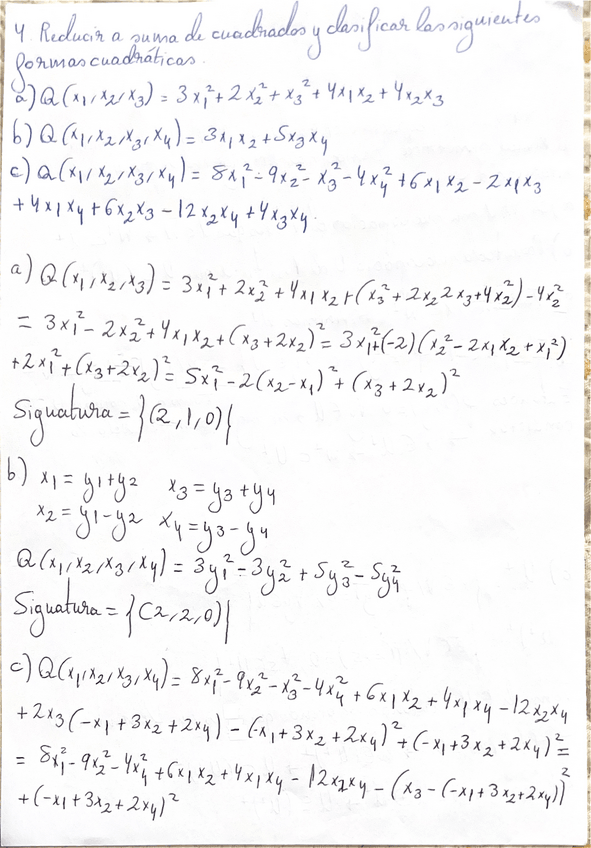 4. Reducir a suma de cuadrados y clasificar las siguientes
formas cuadráticas.
a) Q(x₁,x₂,x₃) = 3x₁² + 2x₂² + x₃² + 4x₁x₂ + 4x₂x₃
b) Q(x₁,x₂,x₃,x₄) = 3x₁x₂ + 5x₃x₄
c) Q(x₁,x₂,x₃,x₄) = 8x₁² - 9x₂² - x₃² - 4x₄² + 6x₁x₂ - 2x₁x₃
+ 4x₁x₄ + 6x₂x₃ - 12x₂x₄ + 4x₃x₄.
a) Q(x₁,x₂,x₃) = 3x₁² + 2x₂² + 4x₁x₂ + (x₃² + 2x₂2x₃ + 4x₂²) - 4x₂²
= 3x₁² - 2x₂² + 4x₁x₂ + (x₃ + 2x₂)² = 3x₁² + (-2)(x₂² - 2x₁x₂ + x₁²)
+ 2x₁² + (x₃ + 2x₂)² = 5x₁² - 2(x₂ - x₁)² + (x₃ + 2x₂)²
Signatura = {(2,1,0)}
b) x₁ = y1 + y2 x₃ = y3 + y4
x₂ = y1 - y2 x₄ = y3 - y4
Q(x₁,x₂,x₃,x₄) = 3y₁² - 3y₂² + 5y₃² - 5y₄²
Signatura = {(2,2,0)}
c) Q(x₁,x₂,x₃,x₄) = 8x₁² - 9x₂² - x₃² - 4x₄² + 6x₁x₂ + 4x₁x₄ - 12x₂x₄
+ 2x₃(-x₁ + 3x₂ + 2x₄) - (-x₁ + 3x₂ + 2x₄)² + (-x₁ + 3x₂ + 2x₄)² =
= 8x₁² - 9x₂² - 4x₄² + 6x₁x₂ + 4x₁x₄ - 12x₂x₄ - (x₃ - (-x₁ + 3x₂ + 2x₄))²
+ (-x₁ + 3x₂ + 2x₄)²